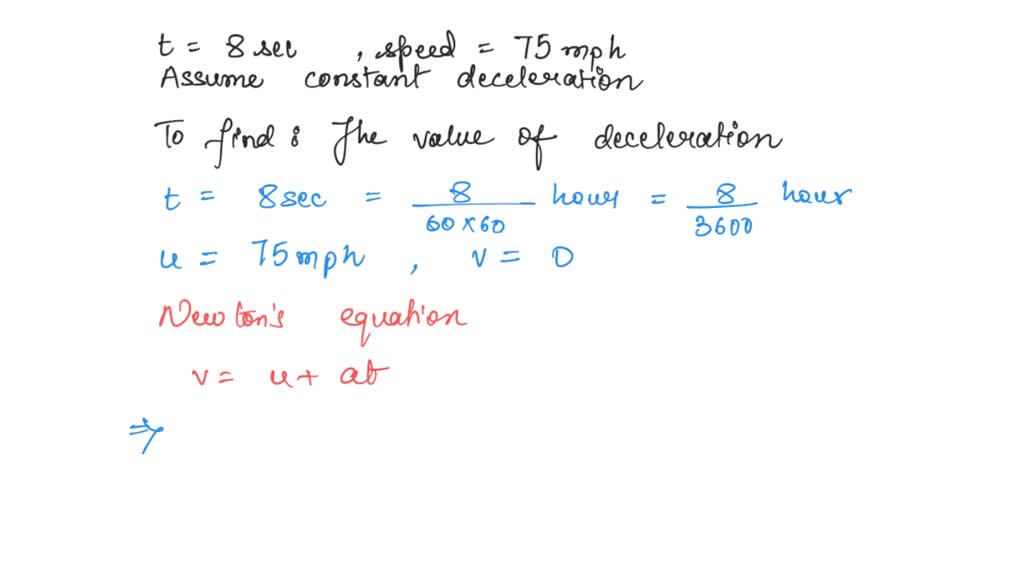 t = 8 sec , speed = 75 mph
Assume constant deceleration
To find : The value of deceleration
t = 8 sec = 8/60×60 hour = 8/3600 hour
u = 75 mph , v = 0
Newton's equation
v = u + at
⇒